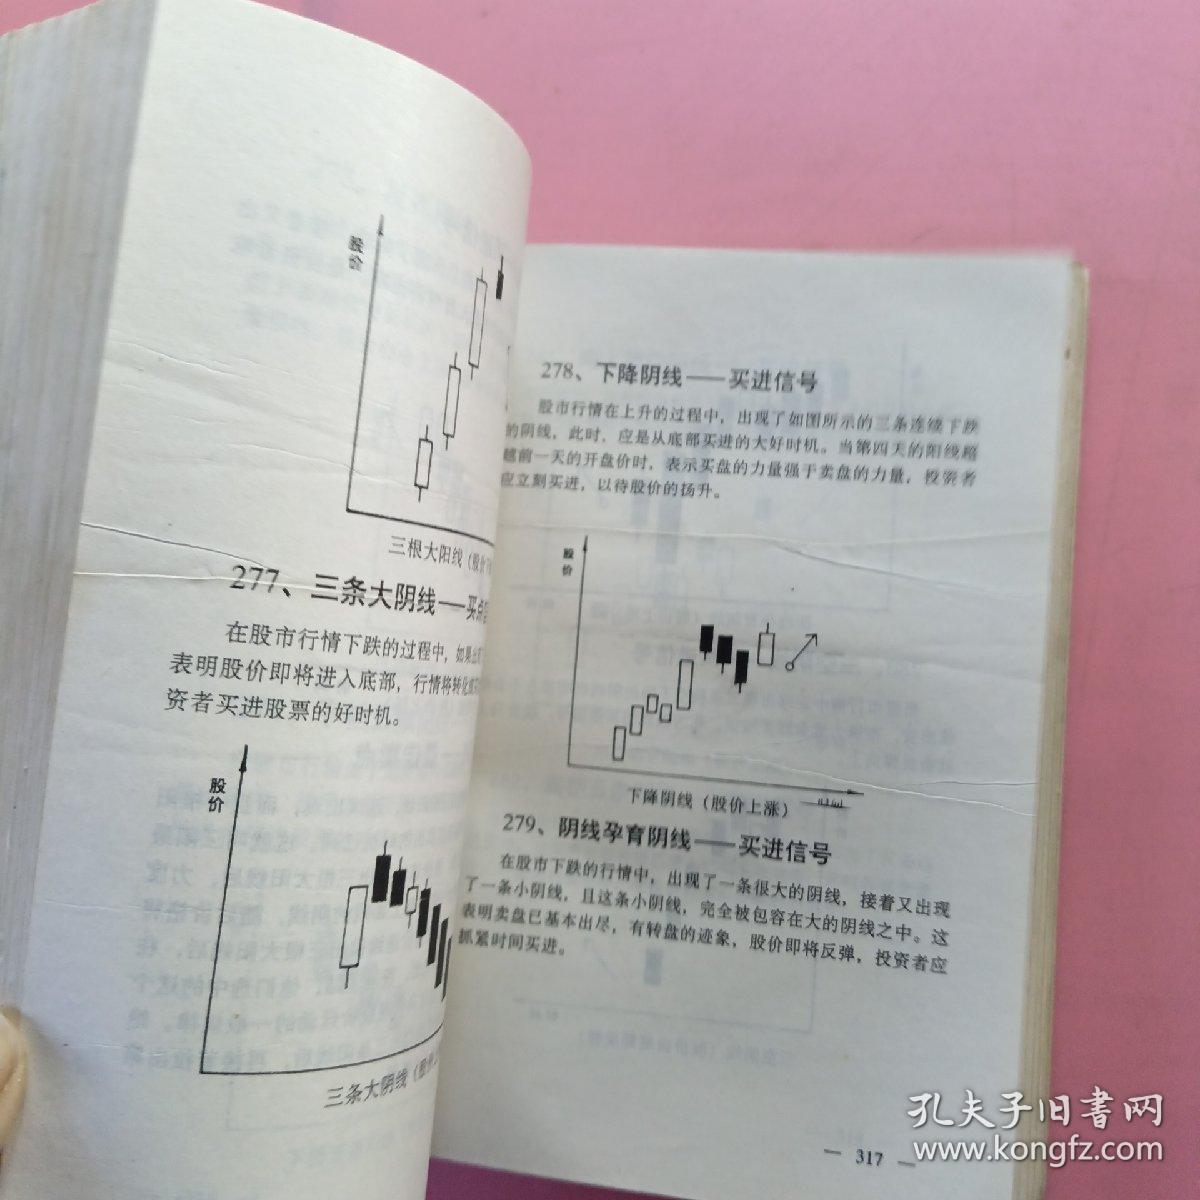 股价
三根大阳线（股价
277、三条大阴线——买
在股市行情下跌的过程中，如果
表明股价即将进入底部，行情将转化
资者买进股票的好时机。
股价
三条大阴线（股价
278、下降阴线——买进信号
股市行情在上升的过程中，出现了如图所示的三条连续下跌
的阴线，此时，应是从底部买进的大好时机。当第四天的阳线超
越前一天的开盘价时，表示买盘的力量强于卖盘的力量，投资者
应立刻买进，以待股价的扬升。
股价
下降阴线（股价上涨）
279、阴线孕育阴线——买进信号
在股市下跌的行情中，出现了一条很大的阴线，接着又出现
了一条小阴线，且这条小阴线，完全被包容在大的阴线之中。这
表明卖盘已基本出尽，有转盘的迹象，股价即将反弹，投资者应
抓紧时间买进。
— 317 —
孔夫子旧书网
www.kongfz.com